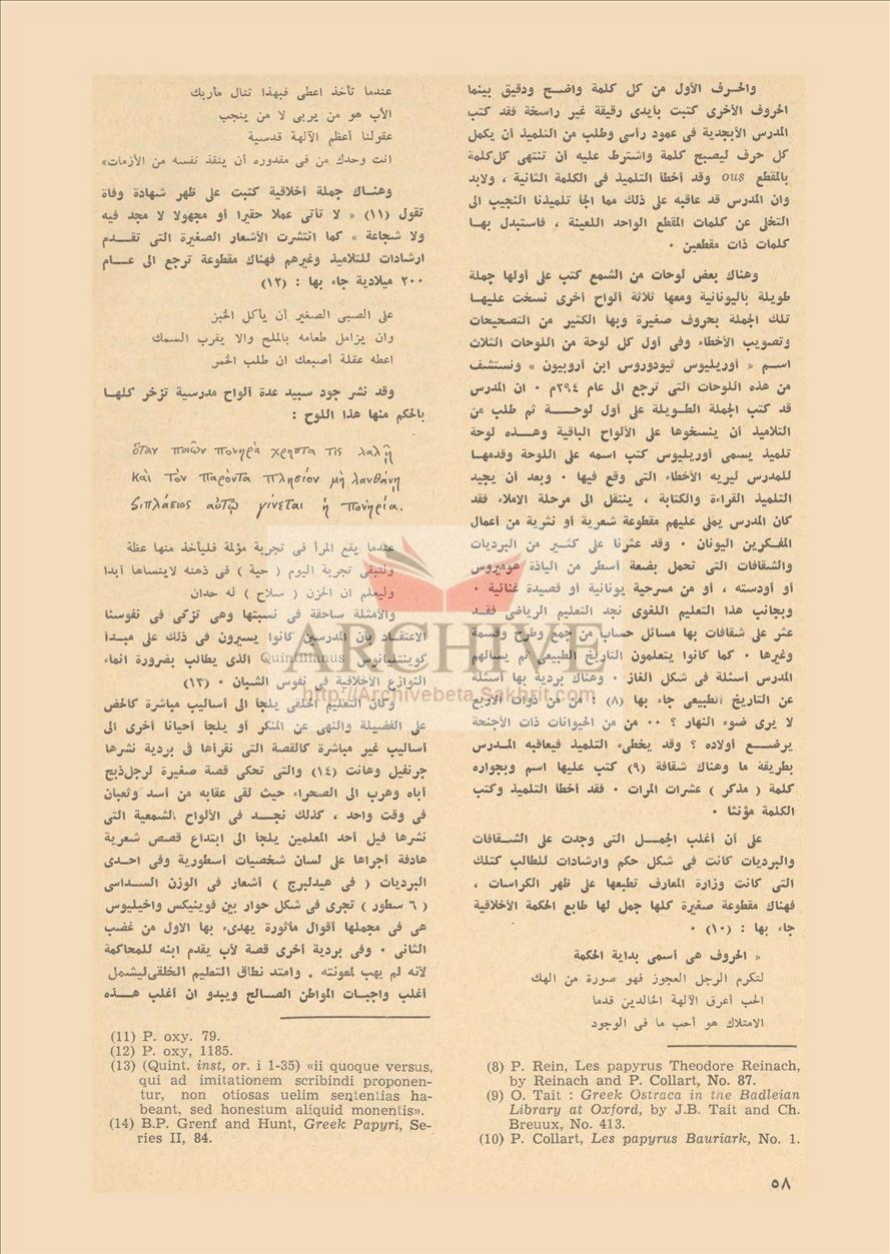 والحرف الأول من كل كلمة واضح ودقيق بينما
الحروف الأخرى كتبت بأيدى رقيقة غير راسخة فقد كتب
المدرس الأبجدية فى عمود رأسى وطلب من التلميذ أن يكمل
كل حرف ليصبح كلمة واشترط عليه أن تنتهى كل كلمة
بالمقطع ous وقد أخطأ التلميذ فى الكلمة الثانية ، ولابد
وان المدرس قد عاقبه على ذلك مما الجأ تلميذنا النجيب الى
التخلى عن كلمات المقطع الواحد اللعينة ، فاستبدل بهـا
كلمات ذات مقطعين ٠
وهناك بعض لوحات من الشمع كتب على أولها جملة
طويلة باليونانية ومعها ثلاثة ألواح أخرى نسخت عليهـا
تلك الجملة بحروف صغيرة وبها الكثير من التصحيحات
وتصويب الأخطاء وفى أول كل لوحة من اللوحات الثلاث
اسـم « أوريليوس ثيودوروس ابن أروبيون » ونستشف
من هذه اللوحات التى ترجع الى عام ٢٩٤م ٠ ان المدرس
قد كتب الجملة الطويلة على أول لوحـــة ثم طلب من
التلاميذ أن ينسخوها على الألواح الباقية وهـــذه لوحة
تلميذ يسمى أوريليوس كتب اسمه على اللوحة وقدمهـا
للمدرس ليريه الأخطاء التى وقع فيها ٠ وبعد أن يجيد
التلميذ القراءة والكتابة ، ينتقل الى مرحلة الاملاء فقد
كان المدرس يملى عليهم مقطوعة شعرية أو نثرية من أعمال
المفكرين اليونان ٠ وقد عثرنا على كثــير من البرديات
والشقافات التى تحمل بضعة أسطر من الياذة هوميروس
أو أودسته ، أو من مسرحية يونانية أو قصيدة غنائية ٠
وبجانب هذا التعليم اللغوى نجد التعليم الرياضى فقـد
عثر على شقافات بها مسائل حساب من جمع وطرح وقسمة
وغيرها ٠ كما كانوا يتعلمون التاريخ الطبيعى ثم يسألهم
المدرس أسئلة فى شكل الغاز ٠ وهناك بردية بها أسئلة
عن التاريخ الطبيعى جاء بها (٨) : من من ذوات الأربع
لا يرى ضوء النهار ؟ ٠٠ من من الحيوانات ذات الأجنحة
يرضـــع أولاده ؟ وقد يخطىء التلميذ فيعاقبه المـدرس
بطريقة ما وهناك شقافة (٩) كتب عليها اسم وبجواره
كلمة ( مذكر ) عشرات المرات ٠ فقد أخطأ التلميذ وكتب
الكلمة مؤنثا ٠
على أن أغلب الجمـــل التى وجدت على الشـقافات
والبرديات كانت فى شكل حكم وارشادات للطالب كتلك
التى كانت وزارة المعارف تطبعها على ظهر الكراسات ،
فهناك مقطوعة صغيرة كلها جمل لها طابع الحكمة الأخلاقية
جاء بها : (١٠) ٠
« الحروف هى أسمى بداية الحكمة
لتكرم الرجل العجوز فهو صورة من الهك
الحب أعرق الآلهة الخالدين قدما
الامتلاك هو أحب ما فى الوجود
(8) P. Rein, Les papyrus Theodore Reinach,
by Reinach and P. Collart, No. 87.
(9) O. Tait : Greek Ostraca in the Badleian
Library at Oxford, by J.B. Tait and Ch.
Breuux, No. 413.
(10) P. Collart, Les papyrus Bauriark, No. 1.
عندما تأخذ اعطى فبهذا تنال مآربك
الأب هو من يربى لا من ينجب
عقولنا أعظم الآلهة قدسية
انت وحدك من فى مقدوره أن ينقذ نفسه من الأزمات»
وهنـاك جملة أخلاقية كتبت على ظهر شهادة وفاة
تقول (١١) « لا تأتى عملا حقيرا أو مجهولا لا مجد فيه
ولا شجاعة » كما انتشرت الأشعار الصغيرة التى تقــدم
ارشادات للتلاميذ وغيرهم فهناك مقطوعة ترجع الى عـــام
٢٠٠ ميلادية جاء بها : (١٢)
على الصبى الصغير أن يأكل الخبز
وان يزامل طعامه بالملح والا يقرب السمك
اعطه عقلة أصبعك ان طلب الخمر
وقد نشر جود سبيد عدة ألواح مدرسية تزخر كلهـا
بالحكم منها هذا اللوح :
ὅταν ποιῶν πονηρὰ χρηστα τις λαλῇ
καὶ τὸν παρόντα πλησίον μὴ λανθάνῃ
διπλάσιος αὐτῷ γίνεται ἡ πονηρία.
عندما يقع المرأ فى تجربة مؤلمة فليأخذ منها عظة
ولتبقى تجربة اليوم ( حية ) فى ذهنه لاينساها أبدا
وليعلم ان الحزن ( سلاح ) له حدان
والأمثلة ساحقة فى نسبتها وهى تزكى فى نفوسنا
الاعتقـاد بأن المدرسين كانوا يسيرون فى ذلك على مبـدأ
كوينتليانوس Quintilianus الذى يطالب بضرورة انماء
النوازع الأخلاقية فى نفوس الشبان ٠ (١٣)
وكان التعليم الخلقى يلجأ الى أساليب مباشرة كالحض
على الفضيلة والنهى عن المنكر أو يلجأ أحيانا أخرى الى
أساليب غير مباشرة كالقصة التى نقرأها فى بردية نشرها
جرنفيل وهانت (١٤) والتى تحكى قصة صغيرة لرجل ذبح
أباه وهرب الى الصحراء حيث لقى عقابه من أسد وثعبان
فى وقت واحد ، كذلك نجــد فى الألواح الشمعية التى
نشرها فيل أحد المعلمين يلجأ الى ابتداع قصص شعرية
هادفة أجراها على لسان شخصيات أسطورية وفى احـدى
البرديات ( فى هيدلبرج ) أشعار فى الوزن السـداسى
( ٦ سطور ) تجرى فى شكل حوار بين فوينيكس واخيليوس
هى فى مجملها أقوال مأثورة يهدىء بها الاول من غضب
الثانى ٠ وفى بردية أخرى قصة لأب يقدم ابنه للمحاكمة
لأنه لم يهب لمعونته . وامتد نطاق التعليم الخلقى ليشمل
أغلب واجبـات المواطن الصـالح ويبدو ان أغلب هـــذه
(11) P. oxy. 79.
(12) P. oxy, 1185.
(13) (Quint. inst, or. i 1-35) «ii quoque versus,
qui ad imitationem scribindi proponen-
tur, non otiosas uelim sententias ha-
beant, sed honestum aliquid monentis».
(14) B.P. Grenf and Hunt, Greek Papyri, Se-
ries II, 84.
٥٨
ARCHIVE
http://Archivebeta.Sakhrit.com